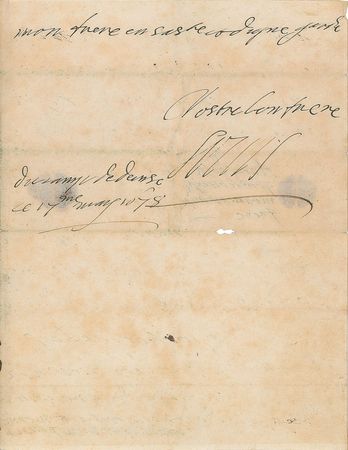 mon frere en sa ste et digne garde
Vostre bon frere
Louis
Du camp de deinse
ce 17me may 1678